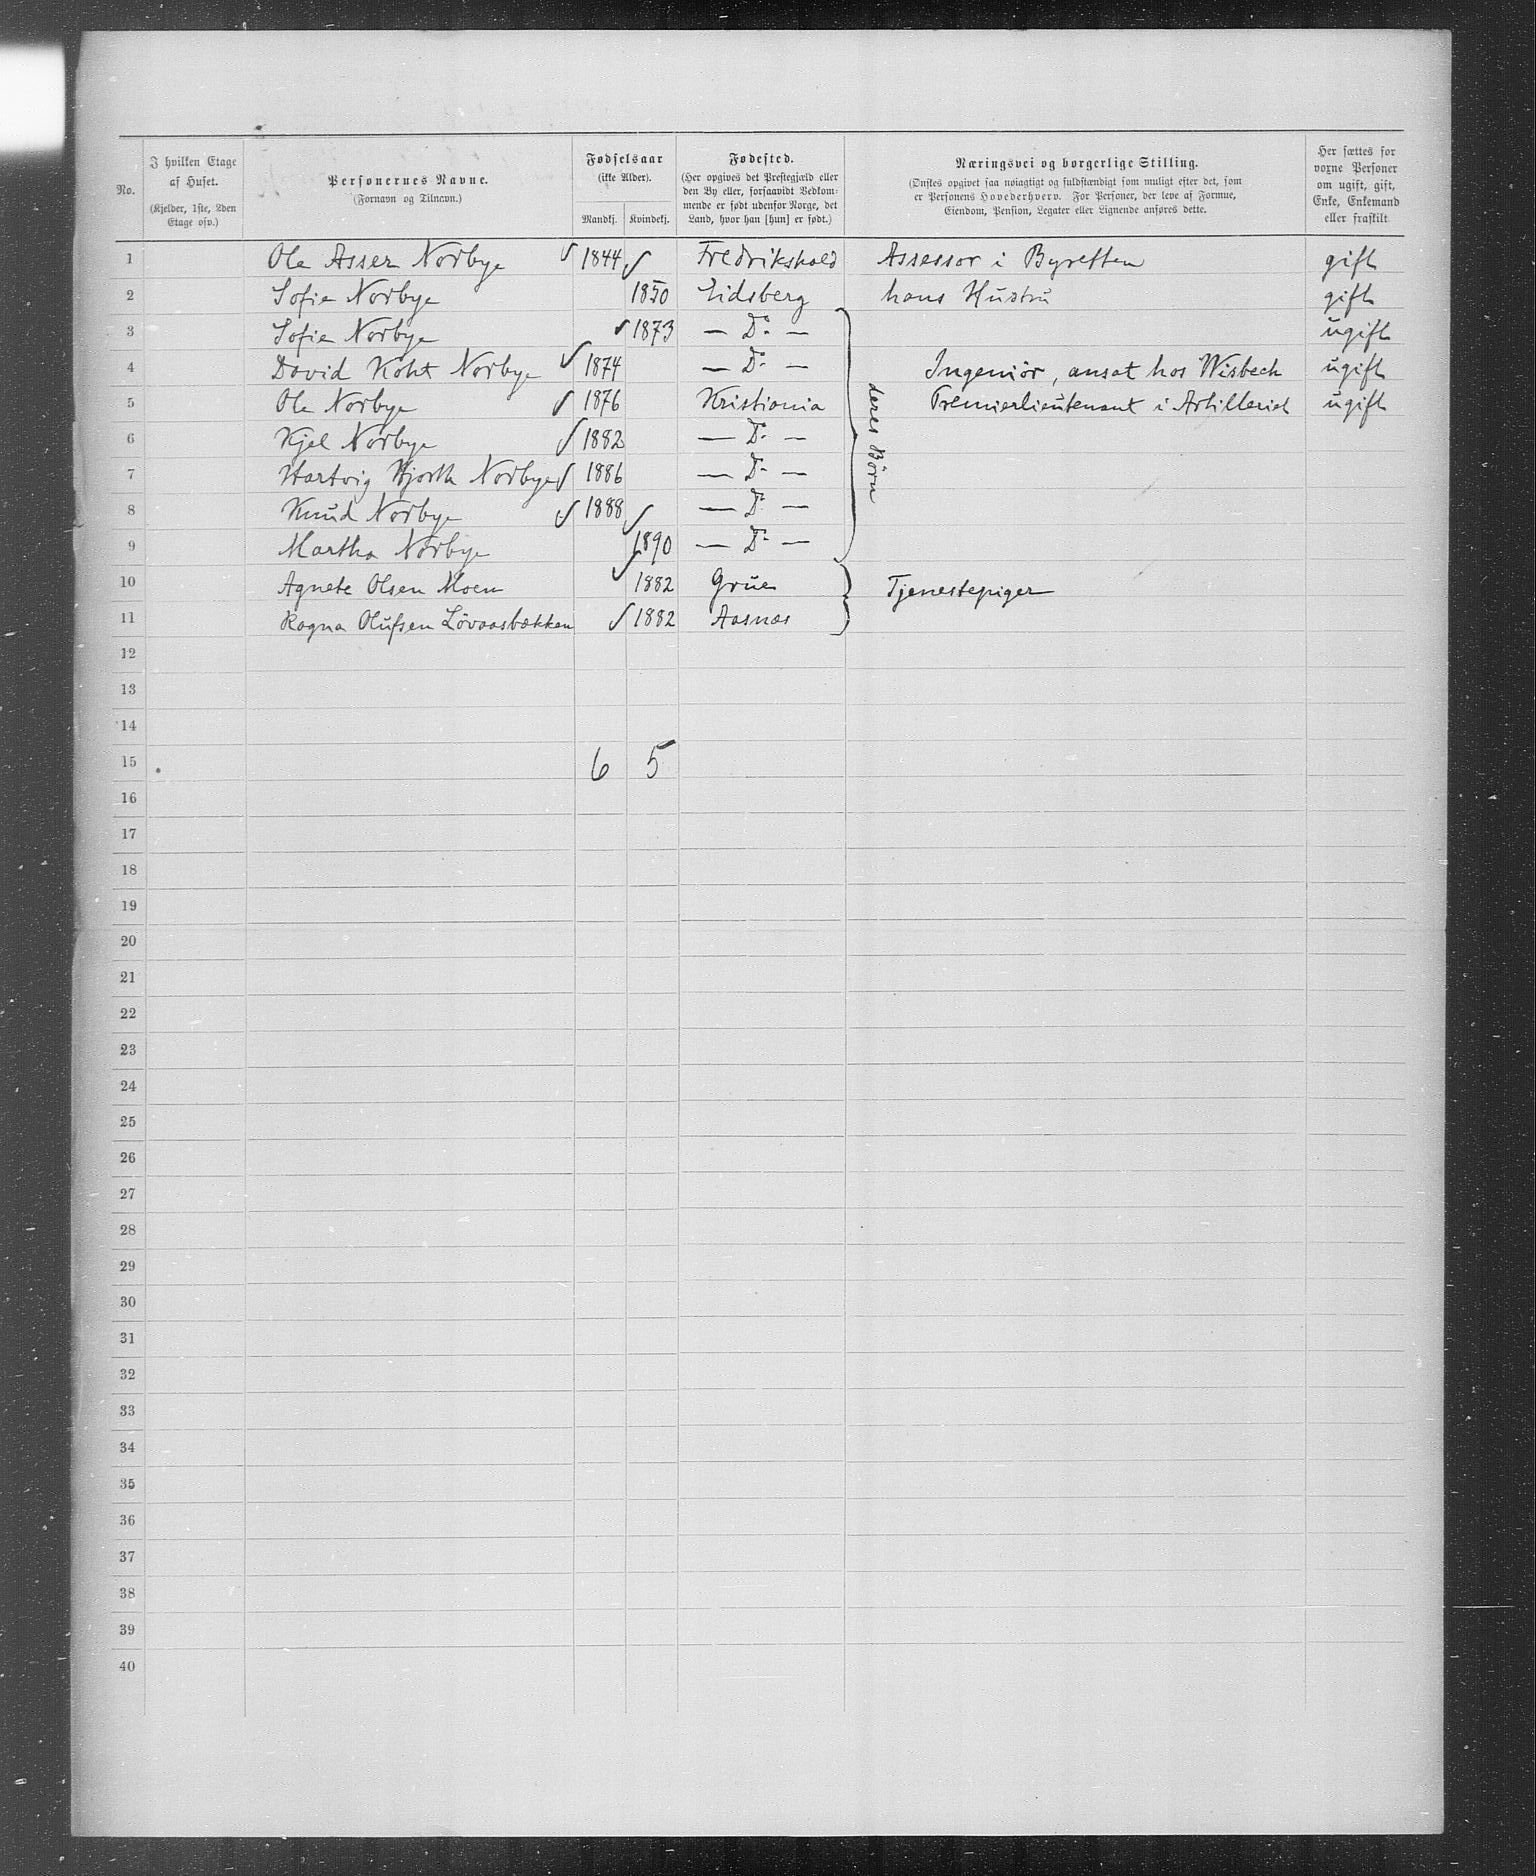 No. | I hvilken Etage af Huset. (Kjelder, 1ste, 2den Etage osv.) | Personernes Navne. (Fornavn og Tilnavn.) | Fødselsaar (ikke Alder). Mandkj. | Kvindekj. | Fødested. (Her opgives det Prestegjæld eller den By eller, forsaavidt Vedkommende er født udenfor Norge, det Land, hvor han [hun] er født.) | Næringsvei og borgerlige Stilling. (Ønskes opgivet saa nøiagtigt og fuldstændigt som muligt efter det, som er Personens Hovederhverv. For Personer, der leve af Formue, Eiendom, Pension, Legater eller Lignende anføres dette. | Her sættes for voxne Personer om ugift, gift, Enke, Enkemand eller fraskilt.
1 Ole Asser Norbye ✓ 1844 Fredrikshald Assessor i Byretten gift
2 Sofie Norbye ✓ 1850 Eidsberg hans Hustru gift
3 Sofie Norbye ✓ 1873 — Do — ugift
4 David Koht Norbye ✓ 1874 — Do — Ingeniør, ansat hos Wisbech ugift
5 Ole Norbye ✓ 1876 Kristiania Premierlieutenant i Artilleriet ugift
deres Børn
6 Kjel Norbye ✓ 1882 — Do —
7 Hartvig Hjorth Norbye ✓ 1886 — Do —
8 Knud Norbye ✓ 1888 — Do —
9 Martha Norbye ✓ 1890 — Do —
10 Agnete Olsen Moen ✓ 1882 Grue Tjenestepiger
11 Ragna Olufsen Løvaasbækken ✓ 1882 Aasnæs
12
13
14
15 6 5
16
17
18
19
20
21
22
23
24
25
26
27
28
29
30
31
32
33
34
35
36
37
38
39
40